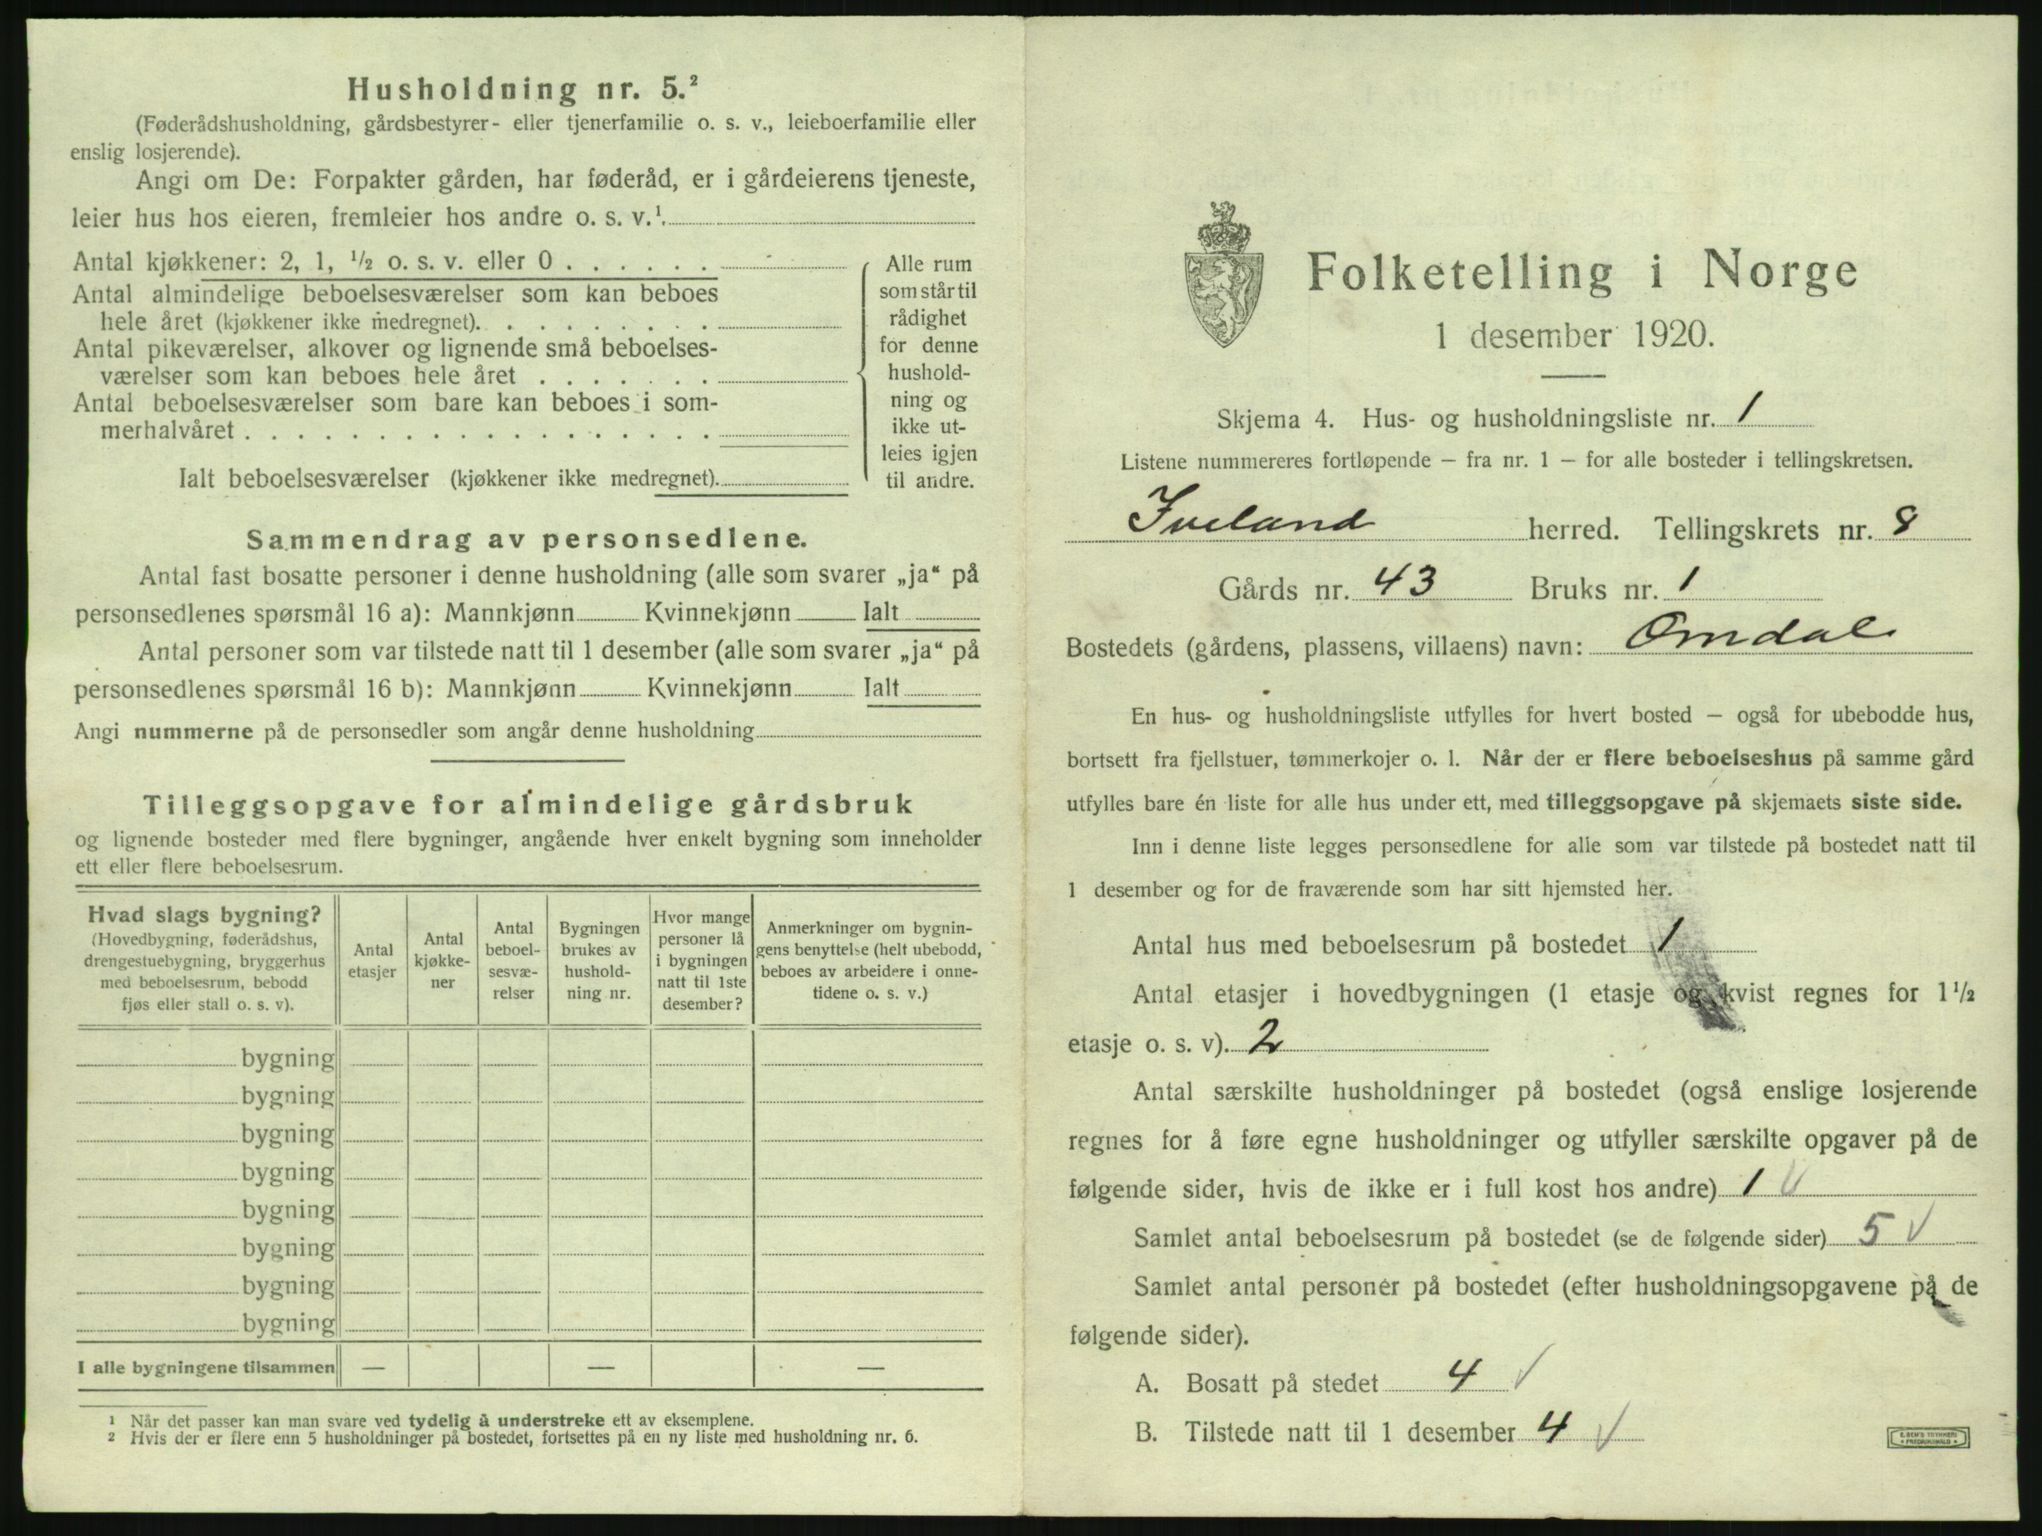 Husholdning nr. 5.²
(Føderådshusholdning, gårdsbestyrer- eller tjenerfamilie o. s. v., leieboerfamilie eller
enslig losjerende).
Angi om De: Forpakter gården, har føderåd, er i gårdeierens tjeneste,
leier hus hos eieren, fremleier hos andre o. s. v.¹
Antal kjøkkener: 2, 1, ½ o. s. v. eller 0 . . . . . .
Antal almindelige beboelsesværelser som kan beboes
hele året (kjøkkener ikke medregnet). . . . . . . . .
Antal pikeværelser, alkover og lignende små beboelses-
værelser som kan beboes hele året . . . . . . .
Antal beboelsesværelser som bare kan beboes i som-
merhalvåret . . . . . . . . . . . . . . . . . .
Ialt beboelsesværelser (kjøkkener ikke medregnet).
Alle rum
som står til
rådighet
for denne
hushold-
ning og
ikke ut-
leies igjen
til andre.
Sammendrag av personsedlene.
Antal fast bosatte personer i denne husholdning (alle som svarer „ja“ på
personsedlenes spørsmål 16 a): Mannkjønn Kvinnekjønn Ialt
Antal personer som var tilstede natt til 1 desember (alle som svarer „ja“ på
personsedlenes spørsmål 16 b): Mannkjønn Kvinnekjønn Ialt
Angi nummerne på de personsedler som angår denne husholdning
Tilleggsopgave for almindelige gårdsbruk
og lignende bosteder med flere bygninger, angående hver enkelt bygning som inneholder
ett eller flere beboelsesrum.
Hvad slags bygning?
(Hovedbygning, føderådshus,
drengestuebygning, bryggerhus
med beboelsesrum, bebodd
fjøs eller stall o. s. v).
Antal
etasjer
Antal
kjøkke-
ner
Antal
beboel-
sesvæ-
relser
Bygningen
brukes av
hushold-
ning nr.
Hvor mange
personer lå
i bygningen
natt til 1ste
desember?
Anmerkninger om bygnin-
gens benyttelse (helt ubebodd,
beboes av arbeidere i onne-
tidene o. s. v.)
bygning
bygning
bygning
bygning
bygning
bygning
bygning
bygning
I alle bygningene tilsammen — — —
¹ Når det passer kan man svare ved tydelig å understreke ett av eksemplene.
² Hvis der er flere enn 5 husholdninger på bostedet, fortsettes på en ny liste med husholdning nr. 6.
Folketelling i Norge
1 desember 1920.
Skjema 4. Hus- og husholdningsliste nr. 1
Listene nummereres fortløpende — fra nr. 1 — for alle bosteder i tellingskretsen.
Iveland herred. Tellingskrets nr. 8
Gårds nr. 43 Bruks nr. 1
Bostedets (gårdens, plassens, villaens) navn: Omdal
En hus- og husholdningsliste utfylles for hvert bosted — også for ubebodde hus,
bortsett fra fjellstuer, tømmerkojer o. l. Når der er flere beboelseshus på samme gård
utfylles bare én liste for alle hus under ett, med tilleggsopgave på skjemaets siste side.
Inn i denne liste legges personsedlene for alle som var tilstede på bostedet natt til
1 desember og for de fraværende som har sitt hjemsted her.
Antal hus med beboelsesrum på bostedet 1
Antal etasjer i hovedbygningen (1 etasje og kvist regnes for 1½
etasje o. s. v). 2
Antal særskilte husholdninger på bostedet (også enslige losjerende
regnes for å føre egne husholdninger og utfyller særskilte opgaver på de
følgende sider, hvis de ikke er i full kost hos andre) 1 √
Samlet antal beboelsesrum på bostedet (se de følgende sider) 5 √
Samlet antal personer på bostedet (efter husholdningsopgavene på de
følgende sider).
A. Bosatt på stedet 4 √
B. Tilstede natt til 1 desember 4 √